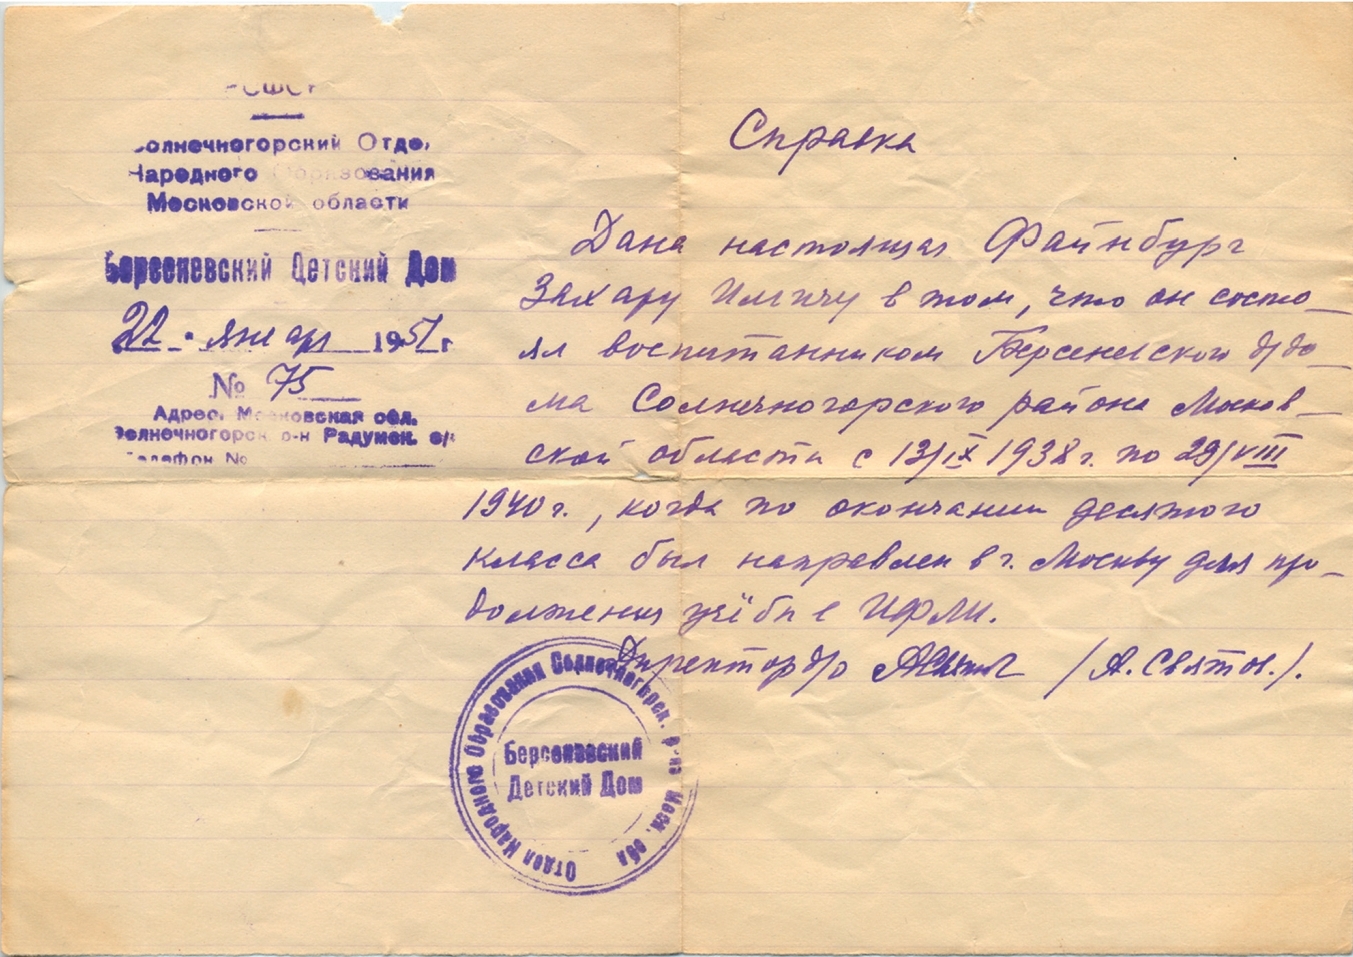 РСФСР
Солнечногорский Отдел
Народного Образования
Московской области
Берсеневский Детский Дом
22. январ 1951 г
№ 75
Адрес: Московская обл.
Солнечногорск. р-н Радумск. с/с
Телефон №
Справка
Дана настоящая Файнбург
Захару Ильичу в том, что он состо_
ял воспитанником Берсеневского д/до_
ма Солнечногорского района Москов_
ской области с 13/IX 1938 г. по 29/VIII
1940 г., когда по окончании десятого
класса был направлен в г. Москву для про_
должения учёбы в ИФЛИ.
Директор д/о (А. Святов.).
Отдел Народного Образования Солнечногорск. р-на Моск. обл
Берсеневский
Детский Дом